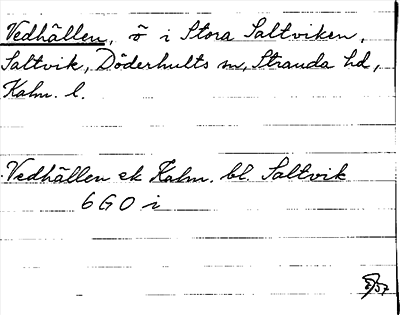 Vedhällen, ö i Stora Saltviken,
Saltvik, Döderhults sn, Stranda hd,
Kalm. l.
Vedhällen ek Kalm. bl. Saltvik
6 G O i